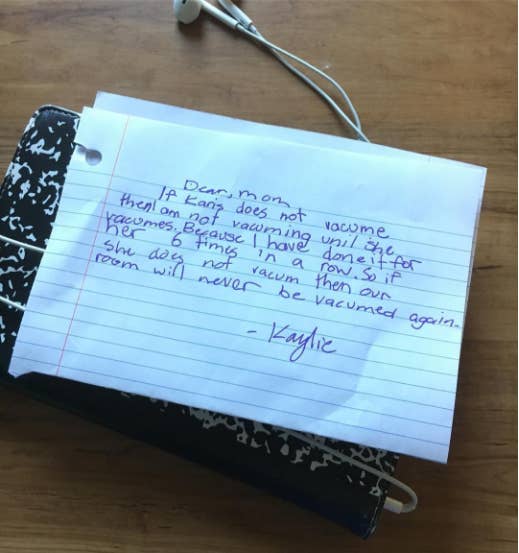 Dear, mom
If Karis does not vacume
then I am not vacuming until she
vacumes. Because I have done it for
her 6 times in a row. So if
she does not vacum then our
room will never be vacumed again.
- Kaylie